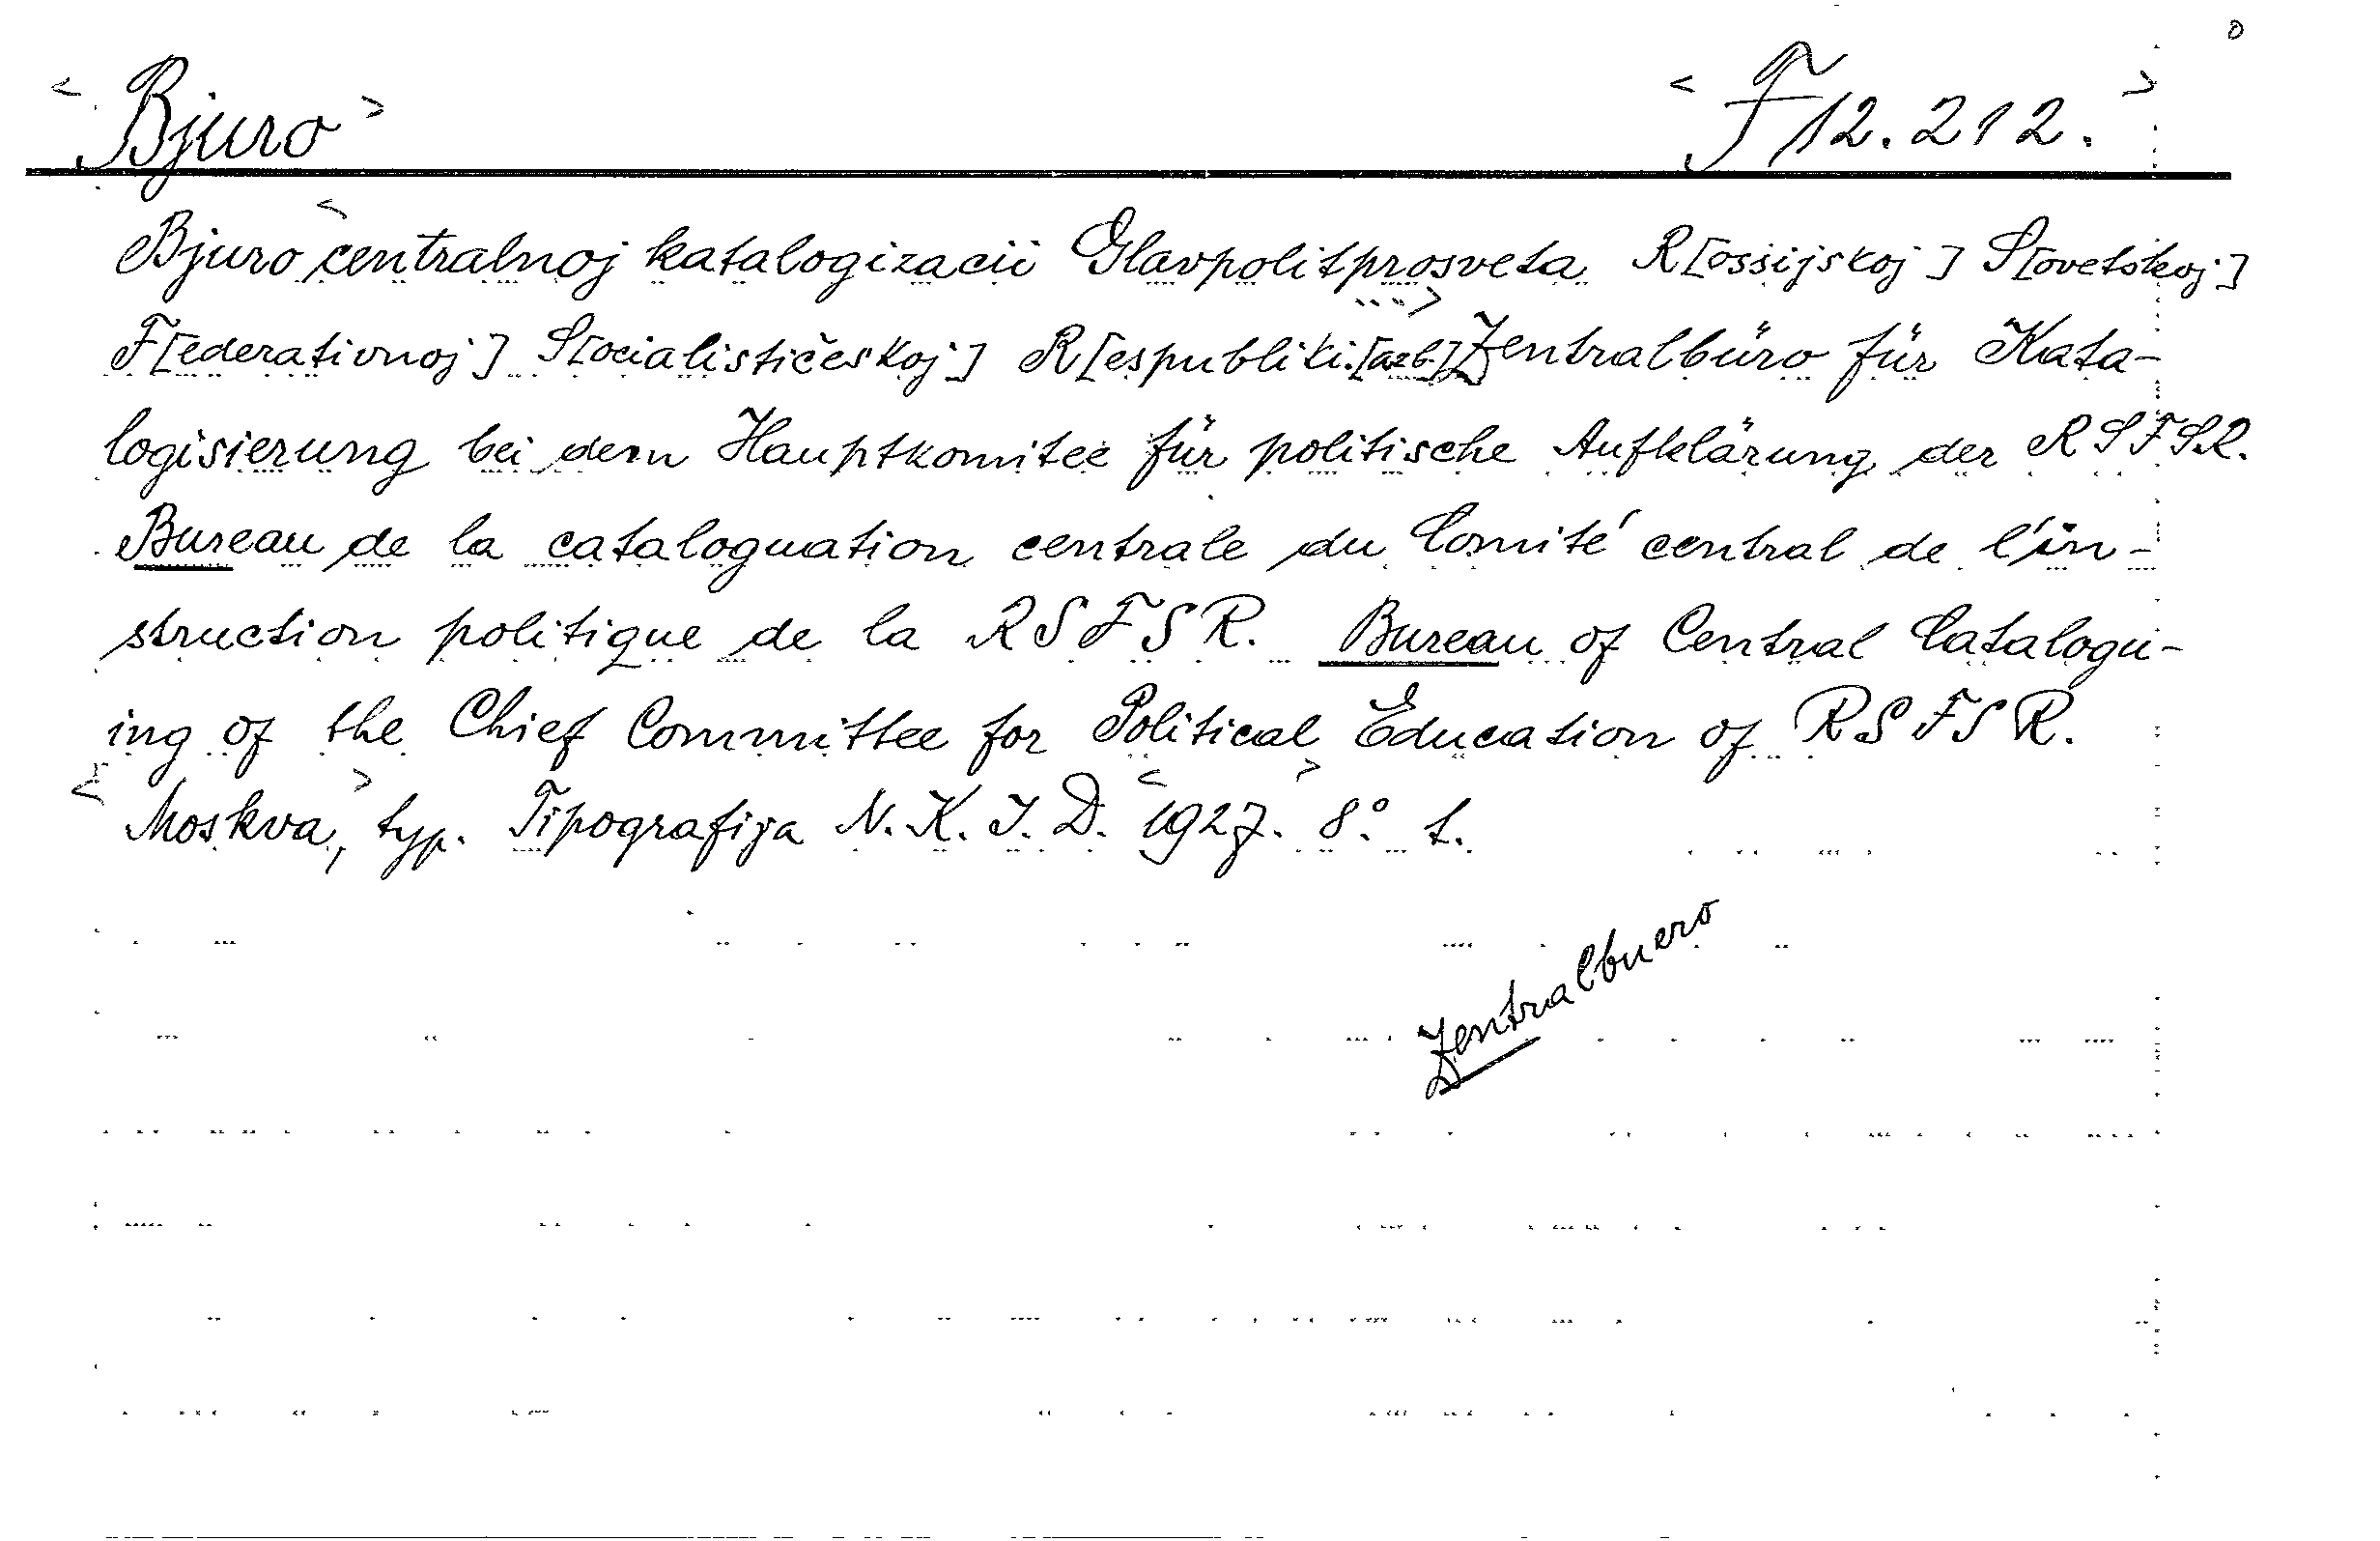 < Bjuro > < F 12.212. >
Bjuro centralnoj katalogizacii Glavpolitprosveta R[ossijskoj] S[ovetskoj]
F[ederativnoj] S[ocialističeskoj] R[espubliki.[azb.] Zentralbüro für Kata-
logisierung bei dem Hauptkomitee für politische Aufklärung der RSFSR.
Bureau de la cataloguation centrale du Comité central de l'in-
struction politique de la RSFSR. Bureau of Central Catalogu-
ing of the Chief Committee for Political Education of RSFSR.
< Moskva, > typ. Tipografija N.K.I.D. < 1927. > 8° L.
Zentralbuero